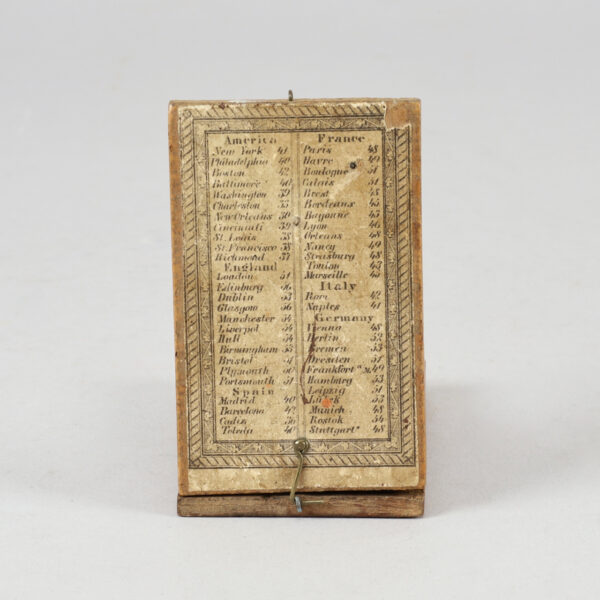 America
New York 41
Philadelphia 40
Boston 42
Baltimore 40
Washington 39
Charleston 33
New Orleans 30
Cincinati 39
St. Louis 38
St. Francisco 38
Richmond 37
England
London 51
Edinburg 56
Dublin 53
Glasgow 56
Manchester 54
Liverpol 54
Hull 54
Birmingham 53
Bristol 51
Plymouth 50
Portsmouth 51
Spain
Madrid 40
Barcelona 42
Cadix 36
Toledo 40
France
Paris 48
Havre 49
Boulogne 51
Calais 51
Brest 48
Bordeaux 45
Bayonne 43
Lyon 46
Orleans 48
Nancy 49
Strasburg 48
Toulon 43
Marseille 43
Italy
Rom 42
Naples 41
Germany
Vienna 48
Berlin 52
Bremen 53
Dresden 51
Frankfort a M. 49
Hamburg 53
Leipzig 51
53
Munich 48
Rostok 54
Stuttgart 48